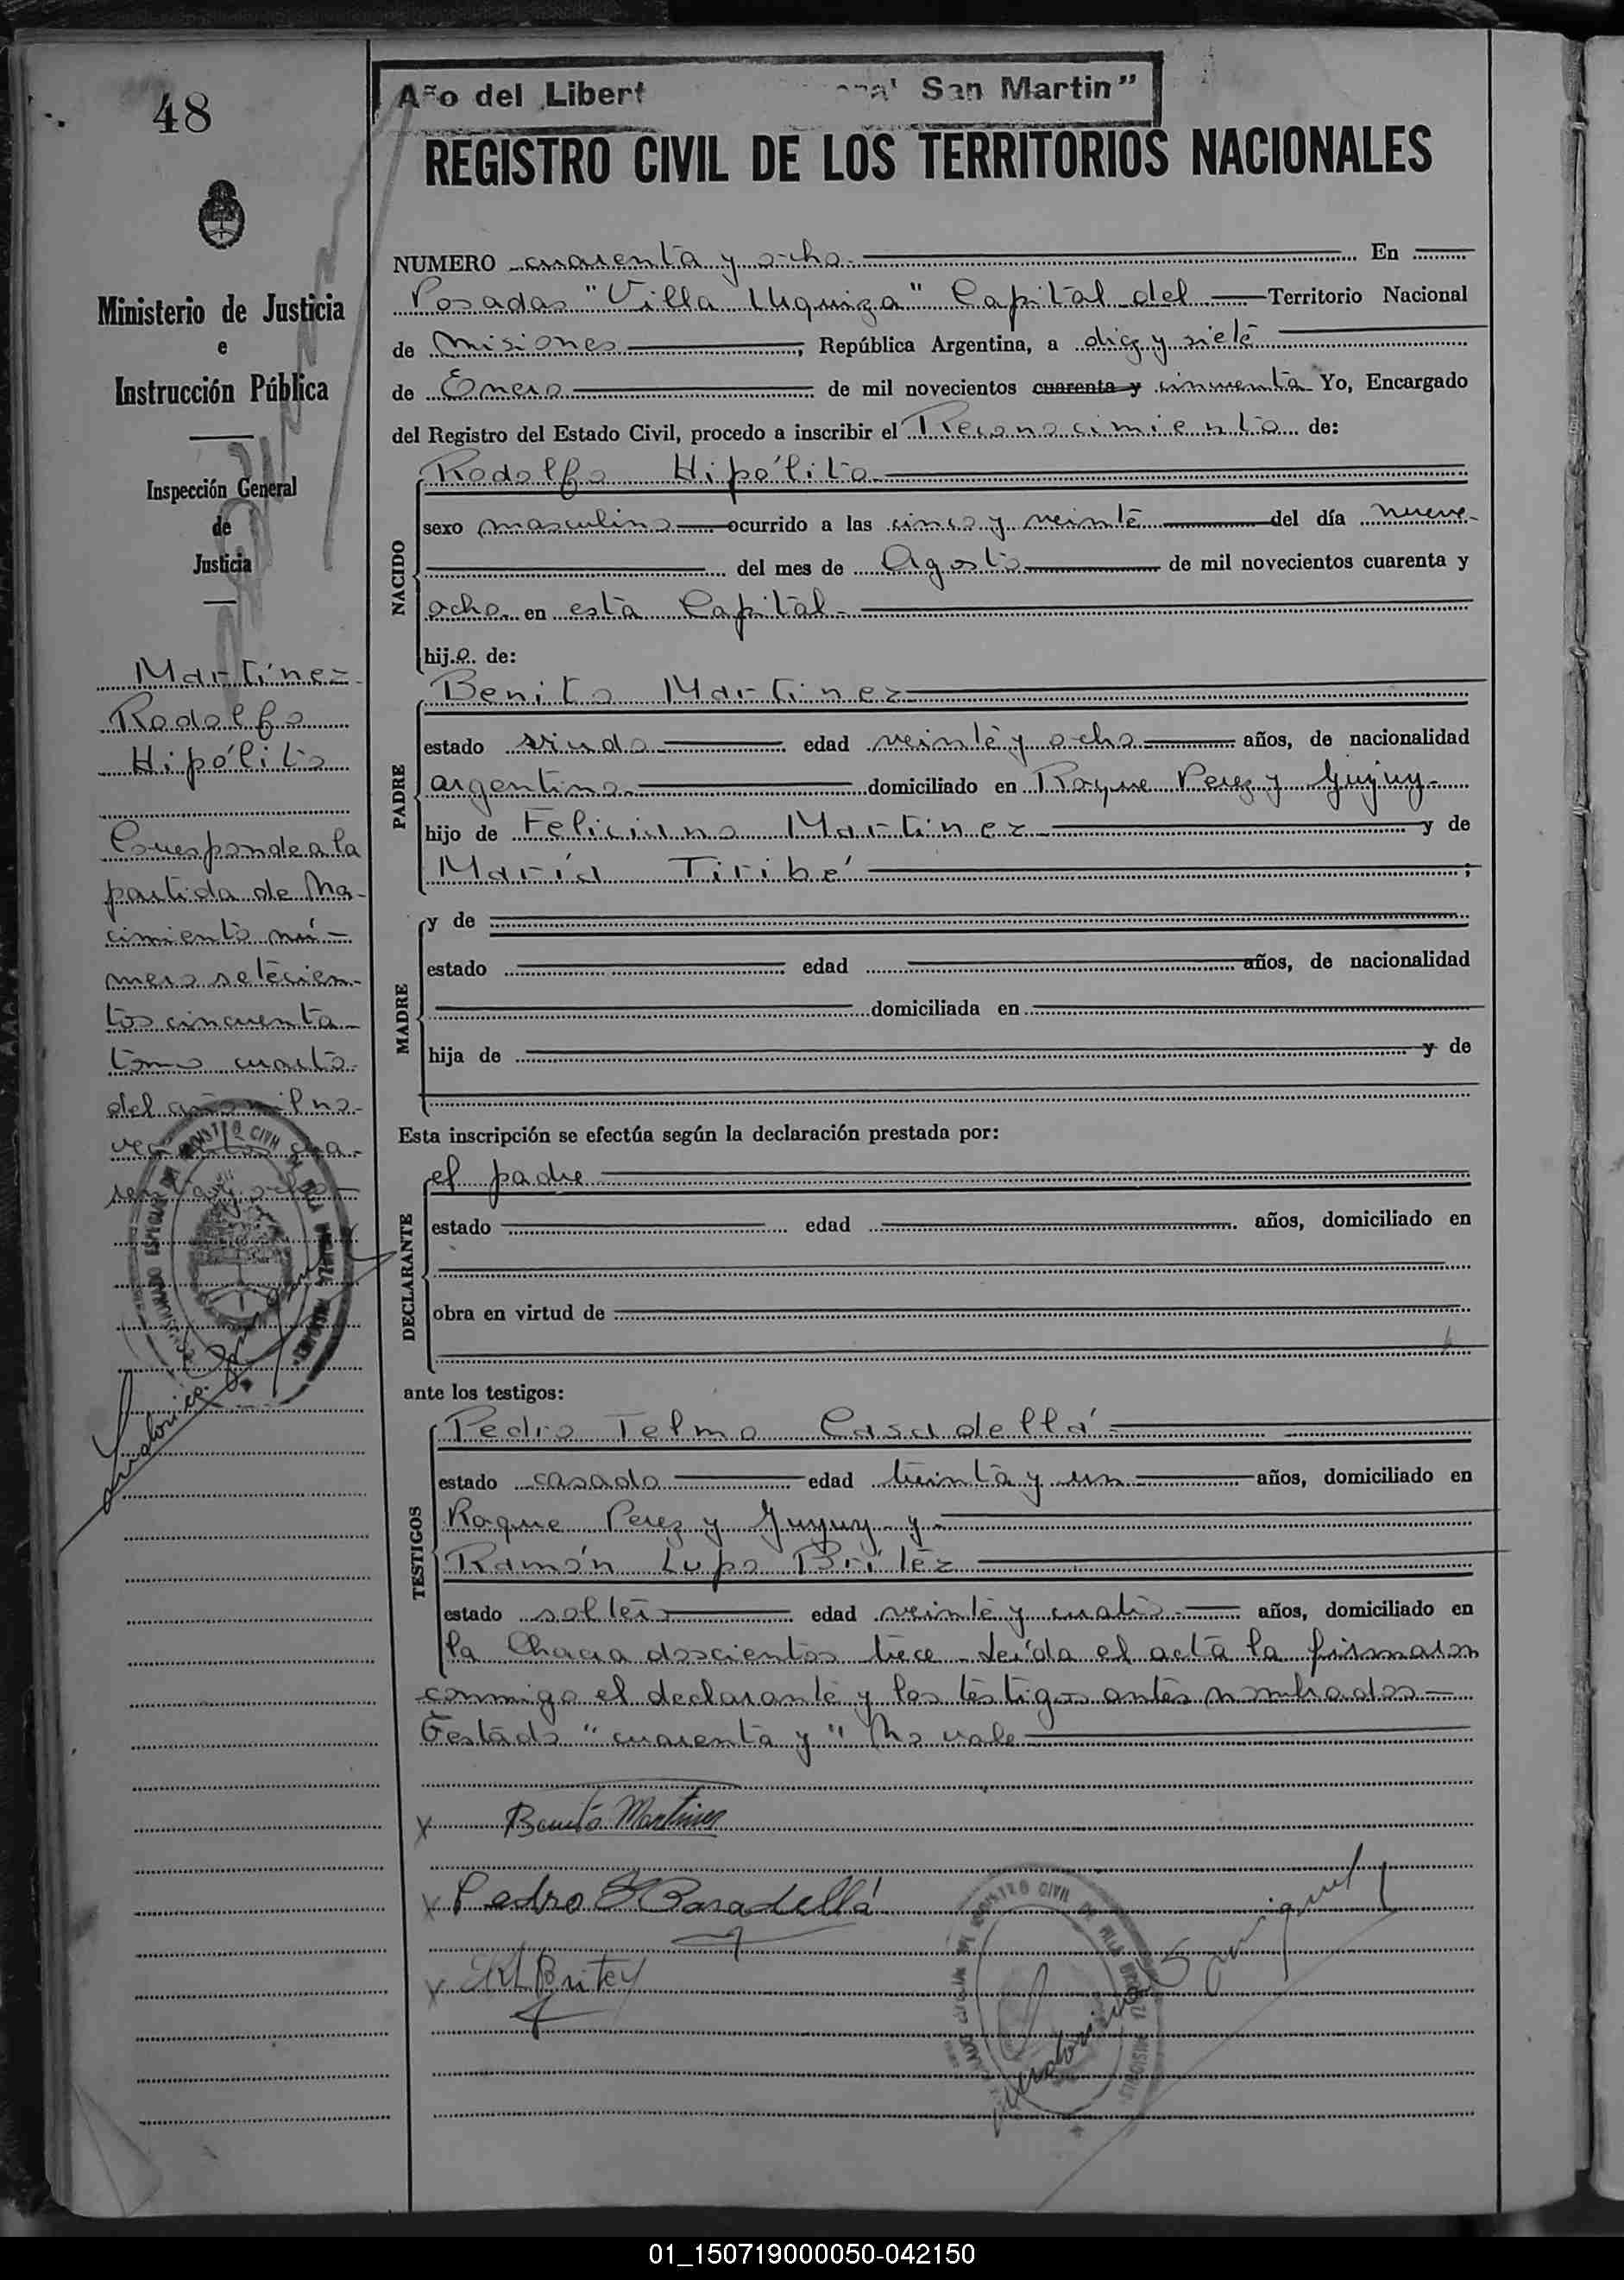 48
Año del Libert
San Martin"
REGISTRO CIVIL DE LOS TERRITORIOS NACIONALES
Ministerio de Justicia
e
Instrucción Pública
Inspección General
de
Justicia
Martínez
Rodolfo
Hipólito
Corresponde a la
partida de Na-
cimiento nú-
mero setecien-
tos cincuenta
tomo cuarto
del año mil no-
NUMERO cuarenta y ocho En
Posadas "Villa Urquiza" Capital del Territorio Nacional
de Misiones, República Argentina, a diez y siete
de Enero de mil novecientos cuarenta y cincuenta Yo, Encargado
del Registro del Estado Civil, procedo a inscribir el Reconocimiento de:
NACIDO
Rodolfo Hipólito
sexo masculino ocurrido a las cinco y veinte del día nueve
del mes de Agosto de mil novecientos cuarenta y
ocho en esta Capital
hijo de:
PADRE
Benito Martinez
estado viudo edad veinte y ocho años, de nacionalidad
argentino domiciliado en Roque Perez y Jujuy
hijo de Feliciano Martinez y de
María Tiribé ;
MADRE
y de
estado edad años, de nacionalidad
domiciliada en
hija de y de
Esta inscripción se efectúa según la declaración prestada por:
DECLARANTE
el padre
estado edad años, domiciliado en
obra en virtud de
ante los testigos:
TESTIGOS
Pedro Telmo Casadellá
estado casado edad treinta y un años, domiciliado en
Roque Perez y Jujuy y
Ramón Lupo Brítez
estado soltero edad veinte y cuatro años, domiciliado en
la Chacra doscientos trece Leída el acta la firmaron
conmigo el declarante y los testigos antes nombrados
Testado "cuarenta y" No vale
Benito Martinez
Pedro Casadellá
Britez
01_150719000050-042150